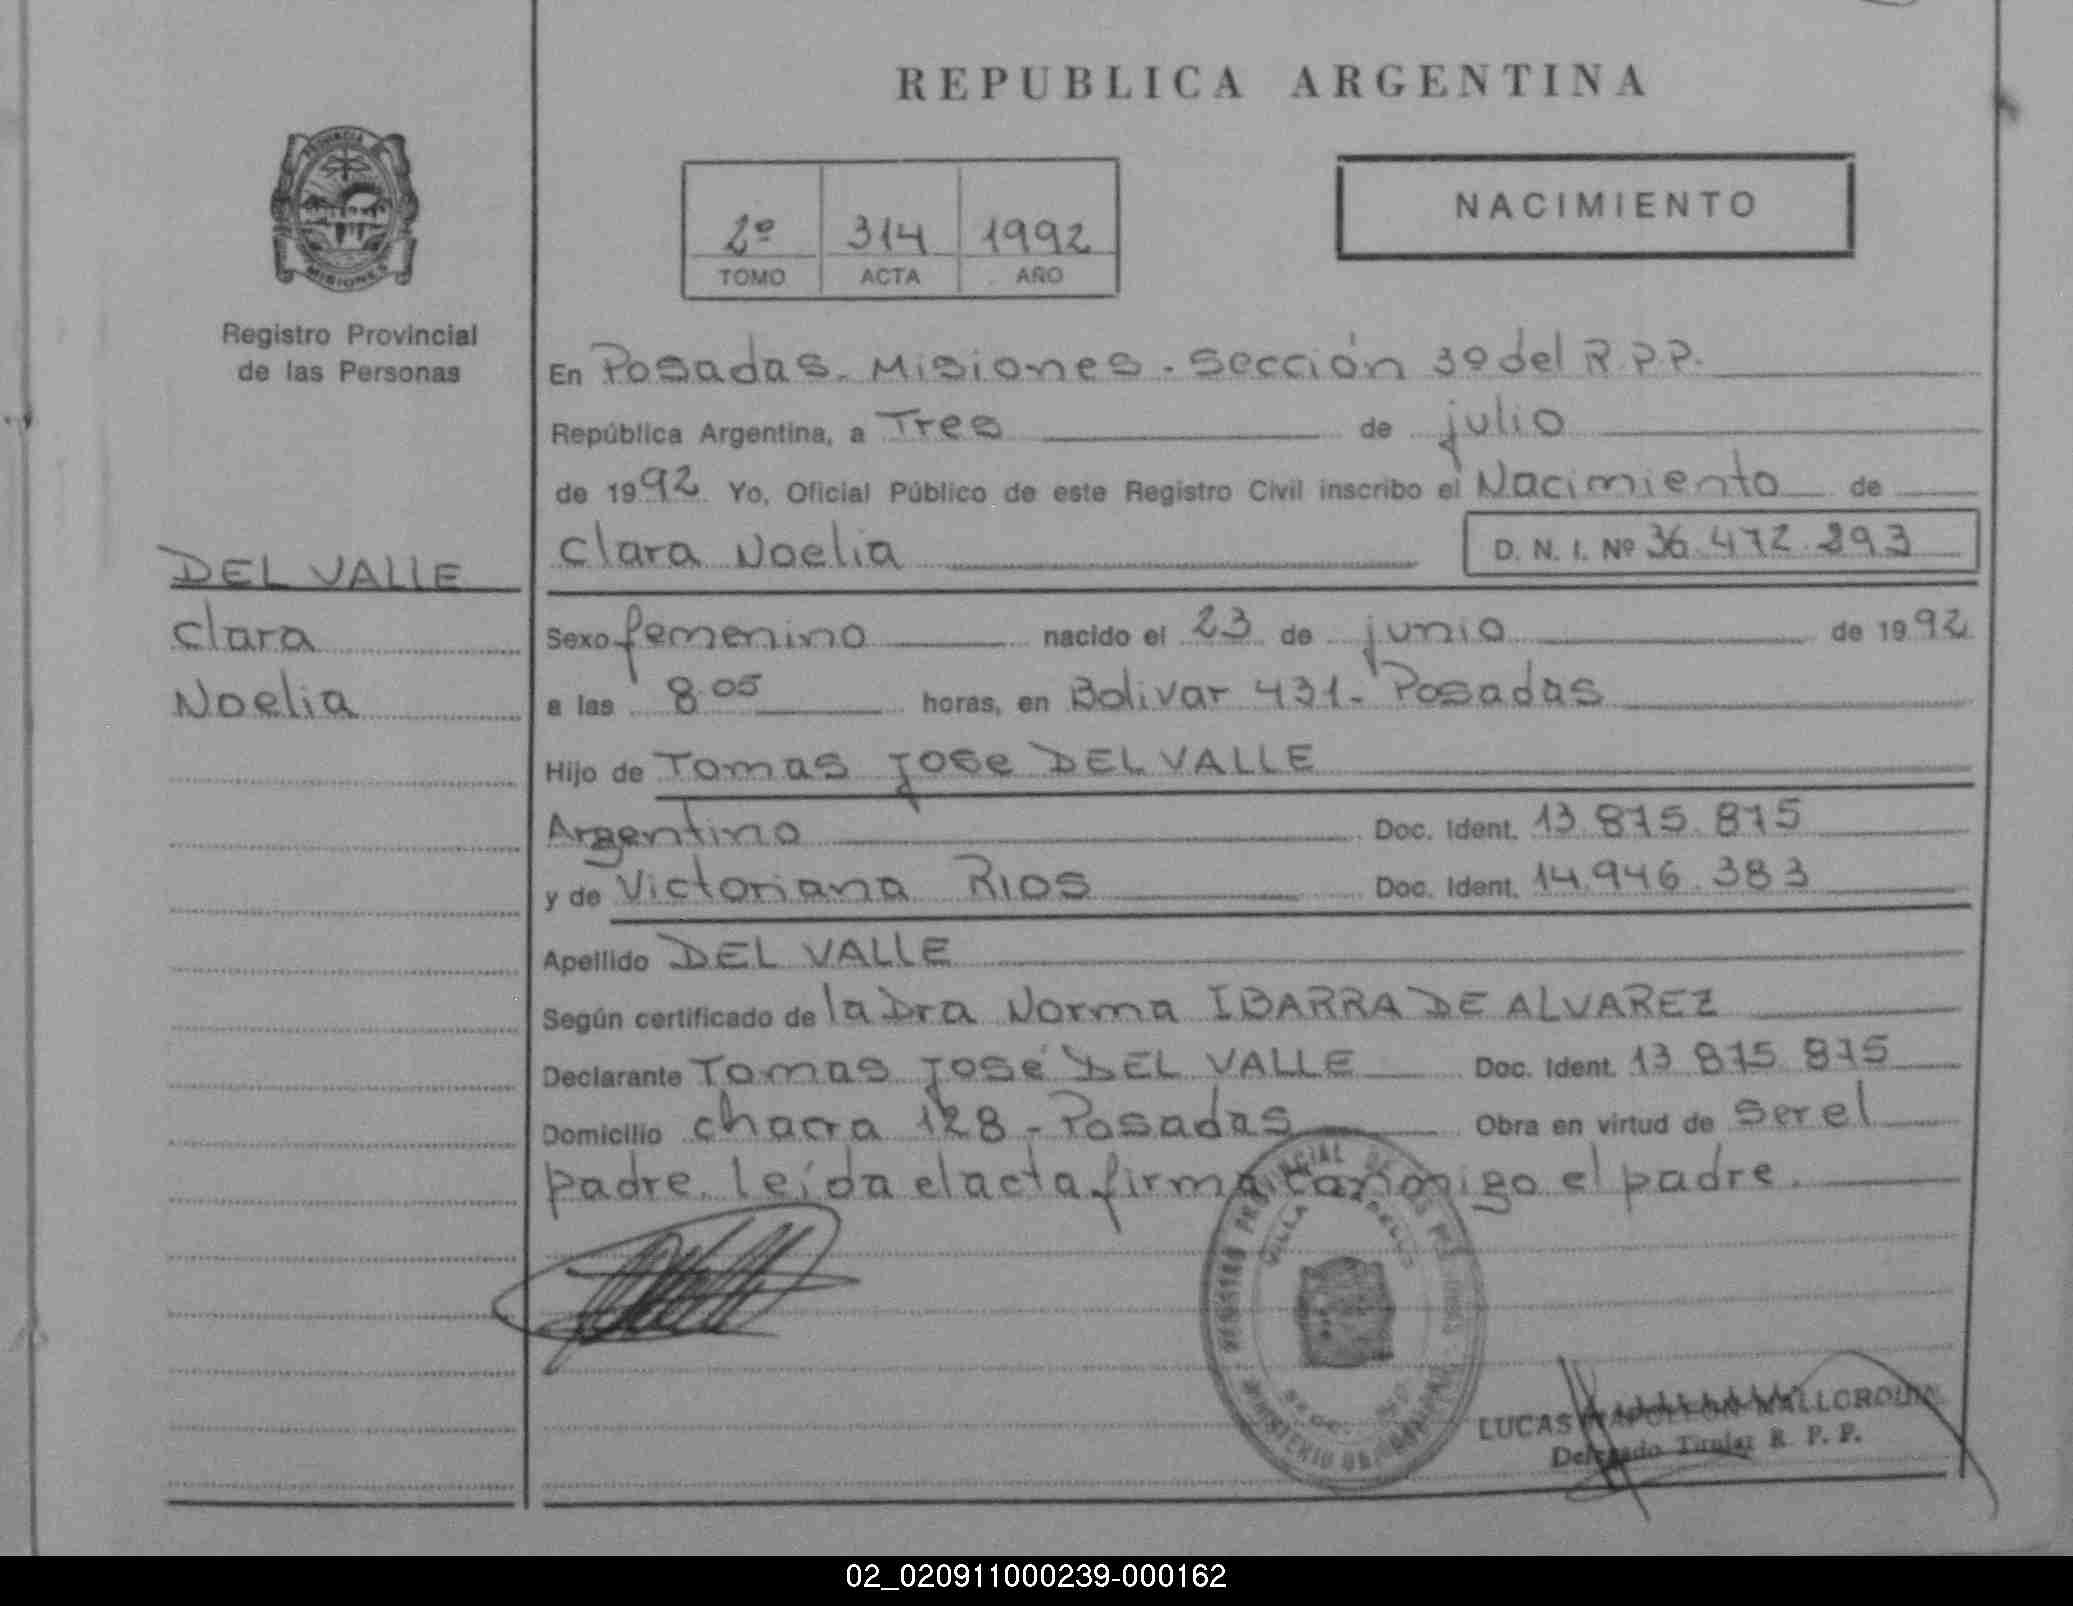 REPUBLICA ARGENTINA
PROVINCIA
MISIONES
Registro Provincial
de las Personas
2º 314 1992
TOMO ACTA AÑO
NACIMIENTO
En Posadas. Misiones. Sección 3º del R.P.P.
República Argentina, a Tres de julio
de 1992 Yo, Oficial Público de este Registro Civil inscribo el Nacimiento de
Clara Noelia D. N. I. Nº 36.472.293
DEL VALLE
Clara
Noelia
Sexo femenino nacido el 23 de junio de 1992
a las 8.05 horas, en Bolivar 431- Posadas
Hijo de Tomas Jose DEL VALLE
Argentino Doc. Ident. 13.875.875
y de Victoriana RIOS Doc. Ident. 14.946.383
Apellido DEL VALLE
Según certificado de la Dra Norma IBARRA DE ALVAREZ
Declarante Tomas José DEL VALLE Doc. Ident. 13 875 875
Domicilio chacra 128 - Posadas Obra en virtud de ser el
padre. leída el acta firma conmigo el padre.
LUCAS NAPOLEON MALLORQUIN
Delegado Titular R. P. P.
02_020911000239-000162